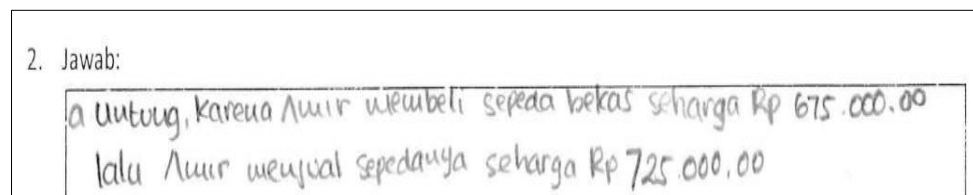 2. Jawab:
a Untung, karena Amir membeli sepeda bekas seharga Rp 675.000.00
lalu Amir menjual sepedanya seharga Rp 725.000,00